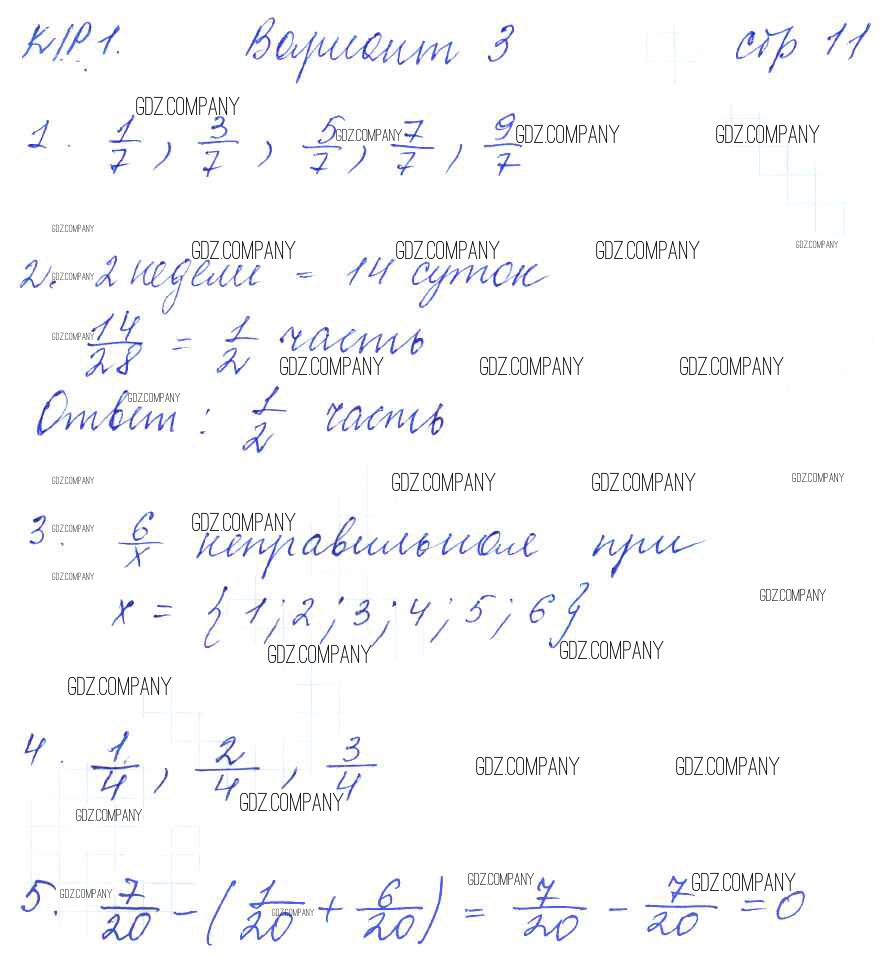 К/Р 1. Вариант 3 стр 11
GDZ.COMPANY
1. 1/7, 3/7, 5/7, 7/7, 9/7
GDZ.COMPANY GDZ.COMPANY GDZ.COMPANY
GDZ.COMPANY
GDZ.COMPANY GDZ.COMPANY GDZ.COMPANY GDZ.COMPANY
2. 2 недели = 14 суток
GDZ.COMPANY
14/28 = 1/2 часть
GDZ.COMPANY
GDZ.COMPANY GDZ.COMPANY GDZ.COMPANY
GDZ.COMPANY
Ответ: 1/2 часть
GDZ.COMPANY GDZ.COMPANY GDZ.COMPANY GDZ.COMPANY
GDZ.COMPANY GDZ.COMPANY
3. 6/x неправильная при
GDZ.COMPANY
GDZ.COMPANY
x = {1; 2; 3; 4; 5; 6}
GDZ.COMPANY GDZ.COMPANY
GDZ.COMPANY
4. 1/4, 2/4, 3/4
GDZ.COMPANY GDZ.COMPANY
GDZ.COMPANY
GDZ.COMPANY
5. 7/20 - (1/20 + 6/20) = 7/20 - 7/20 = 0
GDZ.COMPANY GDZ.COMPANY GDZ.COMPANY
GDZ.COMPANY